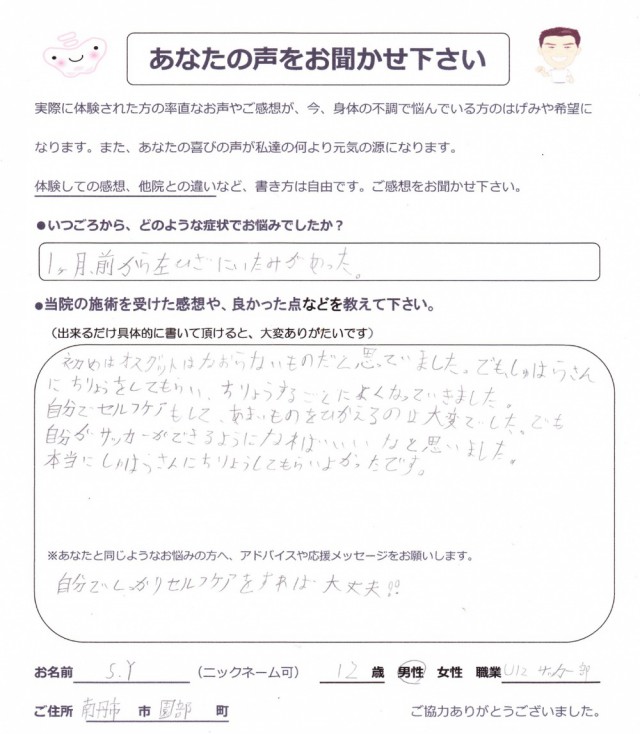 あなたの声をお聞かせ下さい
実際に体験された方の率直なお声やご感想が、今、身体の不調で悩んでいる方のはげみや希望に
なります。また、あなたの喜びの声が私達の何より元気の源になります。
体験しての感想、他院との違いなど、書き方は自由です。ご感想をお聞かせ下さい。
●いつごろから、どのような症状でお悩みでしたか？
1ヶ月前から左ひざにいたみがあった。
●当院の施術を受けた感想や、良かった点などを教えて下さい。
（出来るだけ具体的に書いて頂けると、大変ありがたいです）
初めはオスグットはなおらないものだと思っていました。でも、しゅはらさん
にちりょうをしてもらい、ちりょうするごとによくなっていきました。
自分でセルフケアもして、あまいものをひかえるのは大変でした。でも
自分がサッカーができるようになればいいなと思いました。
本当にしゅはらさんにちりょうしてもらいよかったです。
※あなたと同じようなお悩みの方へ、アドバイスや応援メッセージをお願いします。
自分でしっかりセルフケアをすれば大丈夫!!
お名前 S.Y （ニックネーム可） 12 歳 男性 女性 職業 U12 サッカー部
ご住所 南丹市 市 園部 町 ご協力ありがとうございました。